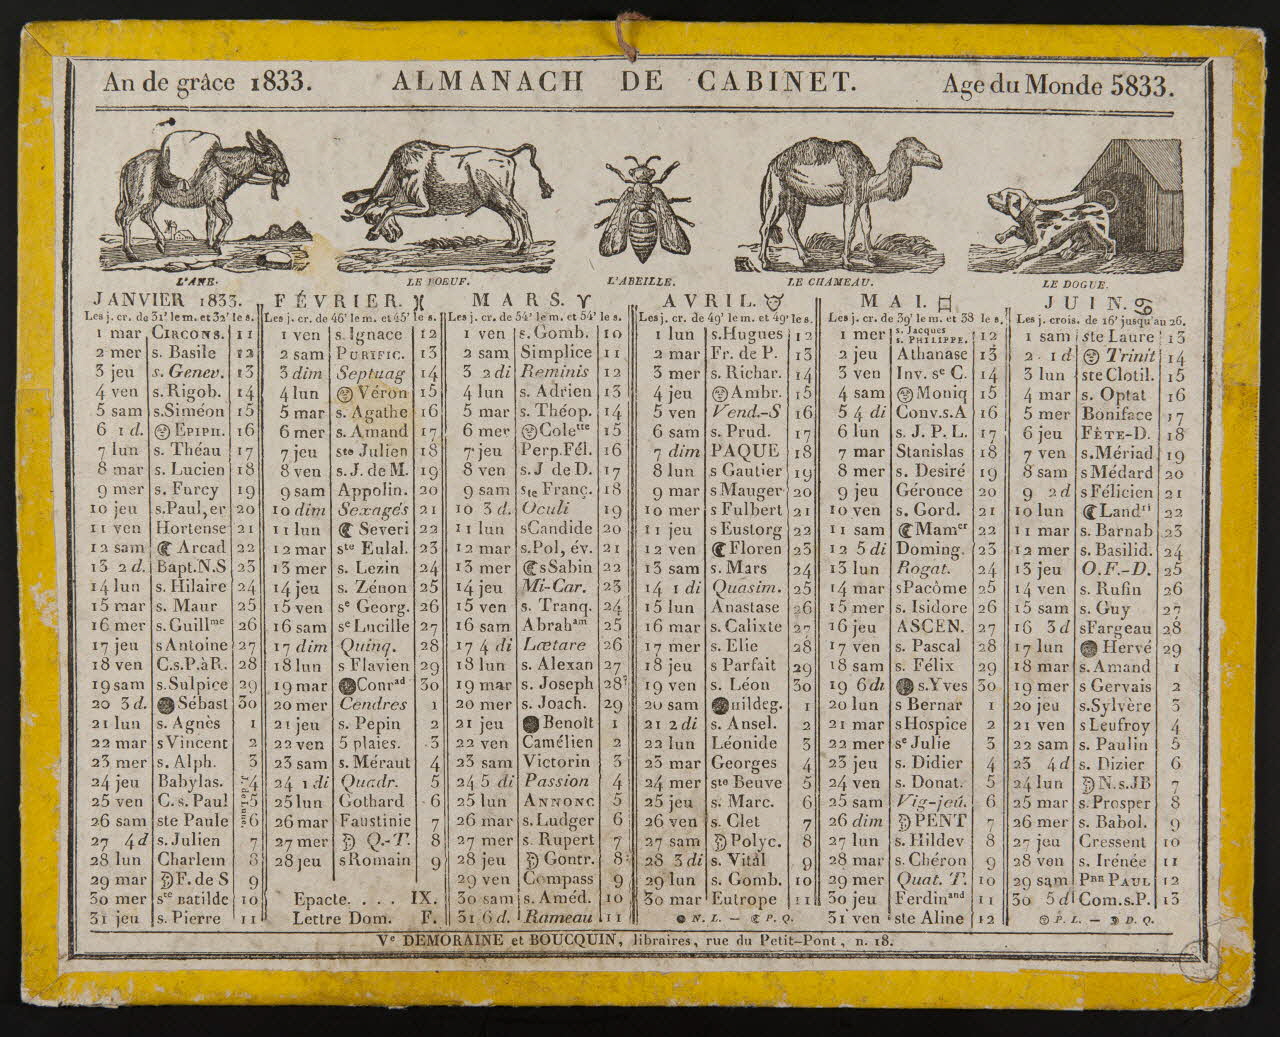 An de grâce 1833. ALMANACH DE CABINET. Age du Monde 5833.
L'ANE. LE BOEUF. L'ABEILLE. LE CHAMEAU. LE DOGUE.
JANVIER 1833.
Les j. cr. de 31' le m. et 32' le s.
1 mar Circons. 11
2 mer s. Basile 12
3 jeu s. Genev. 13
4 ven s. Rigob. 14
5 sam s. Siméon 15
6 1 d. Epiph. 16
7 lun s. Théau 17
8 mar s. Lucien 18
9 mer s. Furcy 19
10 jeu s.Paul,er 20
11 ven Hortense 21
12 sam ☾ Arcad 22
13 2 d. Bapt.N.S 23
14 lun s. Hilaire 24
15 mar s. Maur 25
16 mer s.Guillme 26
17 jeu s Antoine 27
18 ven C.s.P.àR. 28
19 sam s.Sulpice 29
20 3 d. ● Sébast 30
21 lun s. Agnès 1
22 mar s Vincent 2
23 mer s. Alph. 3
24 jeu Babylas. 4
25 ven C. s. Paul 5
26 sam ste Paule 6
27 4d s. Julien 7
28 lun Charlem 8
29 mar ☽F. de S 9
30 mer ste batilde 10
31 jeu s. Pierre 11
J. de Lune
FÉVRIER. ♓
Les j. cr. de 46' le m. et 45' le s.
1 ven s. Ignace 12
2 sam Purific. 13
3 dim Septuag 14
4 lun Véron 15
5 mar s. Agathe 16
6 mer s. Amand 17
7 jeu ste Julien 18
8 ven s. J. de M. 19
9 sam Appolin. 20
10 dim Sexagés 21
11 lun ☾ Severi 22
12 mar ste Eulal. 23
13 mer s. Lezin 24
14 jeu s. Zénon 25
15 ven se Georg. 26
16 sam se Lucille 27
17 dim Quinq. 28
18 lun s Flavien 29
19 mar ●Conrad 30
20 mer Cendres 1
21 jeu s. Pepin 2
22 ven 5 plaies. 3
23 sam s. Méraut 4
24 1 di Quadr. 5
25 lun Gothard 6
26 mar Faustinie 7
27 mer ☽ Q.-T. 8
28 jeu s Romain 9
Epacte. . . . IX.
Lettre Dom. F.
MARS. ♈
Les j. cr. de 54' le m. et 54' le s.
1 ven s. Gomb. 10
2 sam Simplice 11
3 2 di Reminis 12
4 lun s. Adrien 13
5 mar s. Théop. 14
6 mer Colette 15
7 jeu Perp.Fél. 16
8 ven s. J de D. 17
9 sam ste Franç. 18
10 3 d. Oculi 19
11 lun sCandide 20
12 mar s.Pol, év. 21
13 mer ☾sSabin 22
14 jeu Mi-Car. 23
15 ven s. Tranq. 24
16 sam Abraham 25
17 4 di Lætare 26
18 lun s. Alexan 27
19 mar s. Joseph 28
20 mer s. Joach. 29
21 jeu ● Benoît 1
22 ven Camélien 2
23 sam Victorin 3
24 5 di Passion 4
25 lun Annonc 5
26 mar s. Ludger 6
27 mer s. Rupert 7
28 jeu ☽ Gontr. 8
29 ven Compass 9
30 sam s. Améd. 10
31 6 d. Rameau 11
AVRIL. ♉
Les j. cr. de 49' le m. et 49' le s.
1 lun s.Hugues 12
2 mar Fr. de P. 13
3 mer s. Richar. 14
4 jeu Ambr. 15
5 ven Vend.-S 16
6 sam s. Prud. 17
7 dim PAQUE 18
8 lun s Gautier 19
9 mar s Mauger 20
10 mer s Fulbert 21
11 jeu s Eustorg 22
12 ven ☾Floren 23
13 sam s. Mars 24
14 1 di Quasim. 25
15 lun Anastase 26
16 mar s. Calixte 27
17 mer s. Elie 28
18 jeu s Parfait 29
19 ven s. Léon 30
20 sam ●uildeg. 1
21 2 di s. Ansel. 2
22 lun Léonide 3
23 mar Georges 4
24 mer ste Beuve 5
25 jeu s. Marc. 6
26 ven s. Clet 7
27 sam ☽Polyc. 8
28 3 di s. Vital 9
29 lun s. Gomb. 10
30 mar Eutrope 11
● N. L. — ☾ P. Q.
MAI. ♊
Les j. cr. de 39' le m. et 38 le s.
1 mer s. Jacques s. Philippe. 12
2 jeu Athanase 13
3 ven Inv. se C. 14
4 sam Moniq 15
5 4 di Conv.s.A 16
6 lun s. J. P. L. 17
7 mar Stanislas 18
8 mer s. Desiré 19
9 jeu Géronce 20
10 ven s. Gord. 21
11 sam ☾Mamer 22
12 5 di Doming. 23
13 lun Rogat. 24
14 mar sPacôme 25
15 mer s. Isidore 26
16 jeu ASCEN. 27
17 ven s. Pascal 28
18 sam s. Félix 29
19 6di ● s.Yves 30
20 lun s Bernar 1
21 mar sHospice 2
22 mer se Julie 3
23 jeu s. Didier 4
24 ven s. Donat. 5
25 sam Vig-jeû. 6
26 dim ☽PENT 7
27 lun s. Hildev 8
28 mar s. Chéron 9
29 mer Quat. T. 10
30 jeu Ferdinand 11
31 ven ste Aline 12
JUIN. ♋
Les j. crois. de 16' jusqu'au 26.
1 sam ste Laure 13
2 1 d Trinit 14
3 lun ste Clotil. 15
4 mar s. Optat 16
5 mer Boniface 17
6 jeu Fète-D. 18
7 ven s.Mériad 19
8 sam s Médard 20
9 2 d s Félicien 21
10 lun ☾Landri 22
11 mar s. Barnab 23
12 mer s. Basilid. 24
13 jeu O.F.-D. 25
14 ven s. Rufin 26
15 sam s. Guy 27
16 3 d sFargeau 28
17 lun ● Hervé 29
18 mar s. Amand 1
19 mer s Gervais 2
20 jeu s.Sylvère 3
21 ven s Leufroy 4
22 sam s. Paulin 5
23 4d s. Dizier 6
24 lun ☽N.s.JB 7
25 mar s. Prosper 8
26 mer s. Babol. 9
27 jeu Cressent 10
28 ven s. Irénée 11
29 sam Pre Paul 12
30 5 d Com.s.P. 13
P. L. — ☽ D. Q.
Ve DEMORAINE et BOUCQUIN, libraires, rue du Petit-Pont, n. 18.